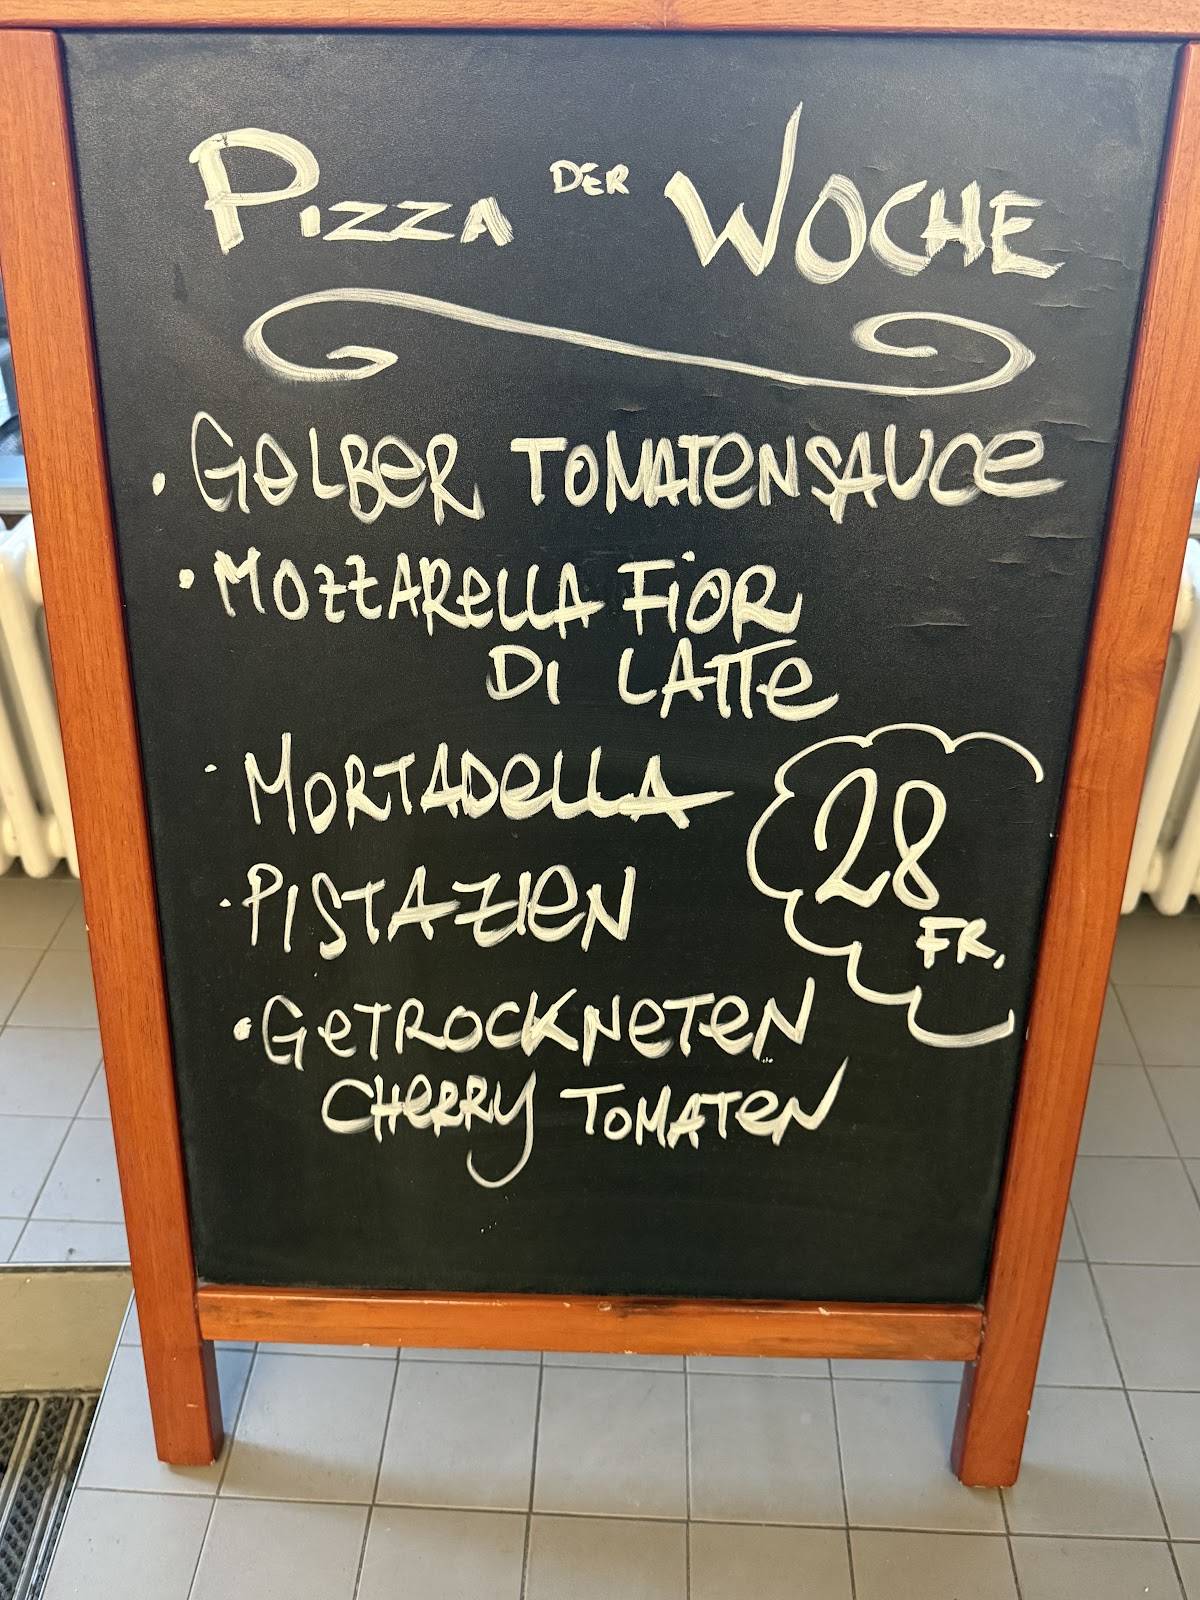 PIZZA DER WOCHE
· GELBER TOMATENSAUCE
· MOZZARELLA FIOR
DI LATTE
· MORTADELLA
· PISTAZIEN
28
FR.
· GETROCKNETEN
CHERRY TOMATEN